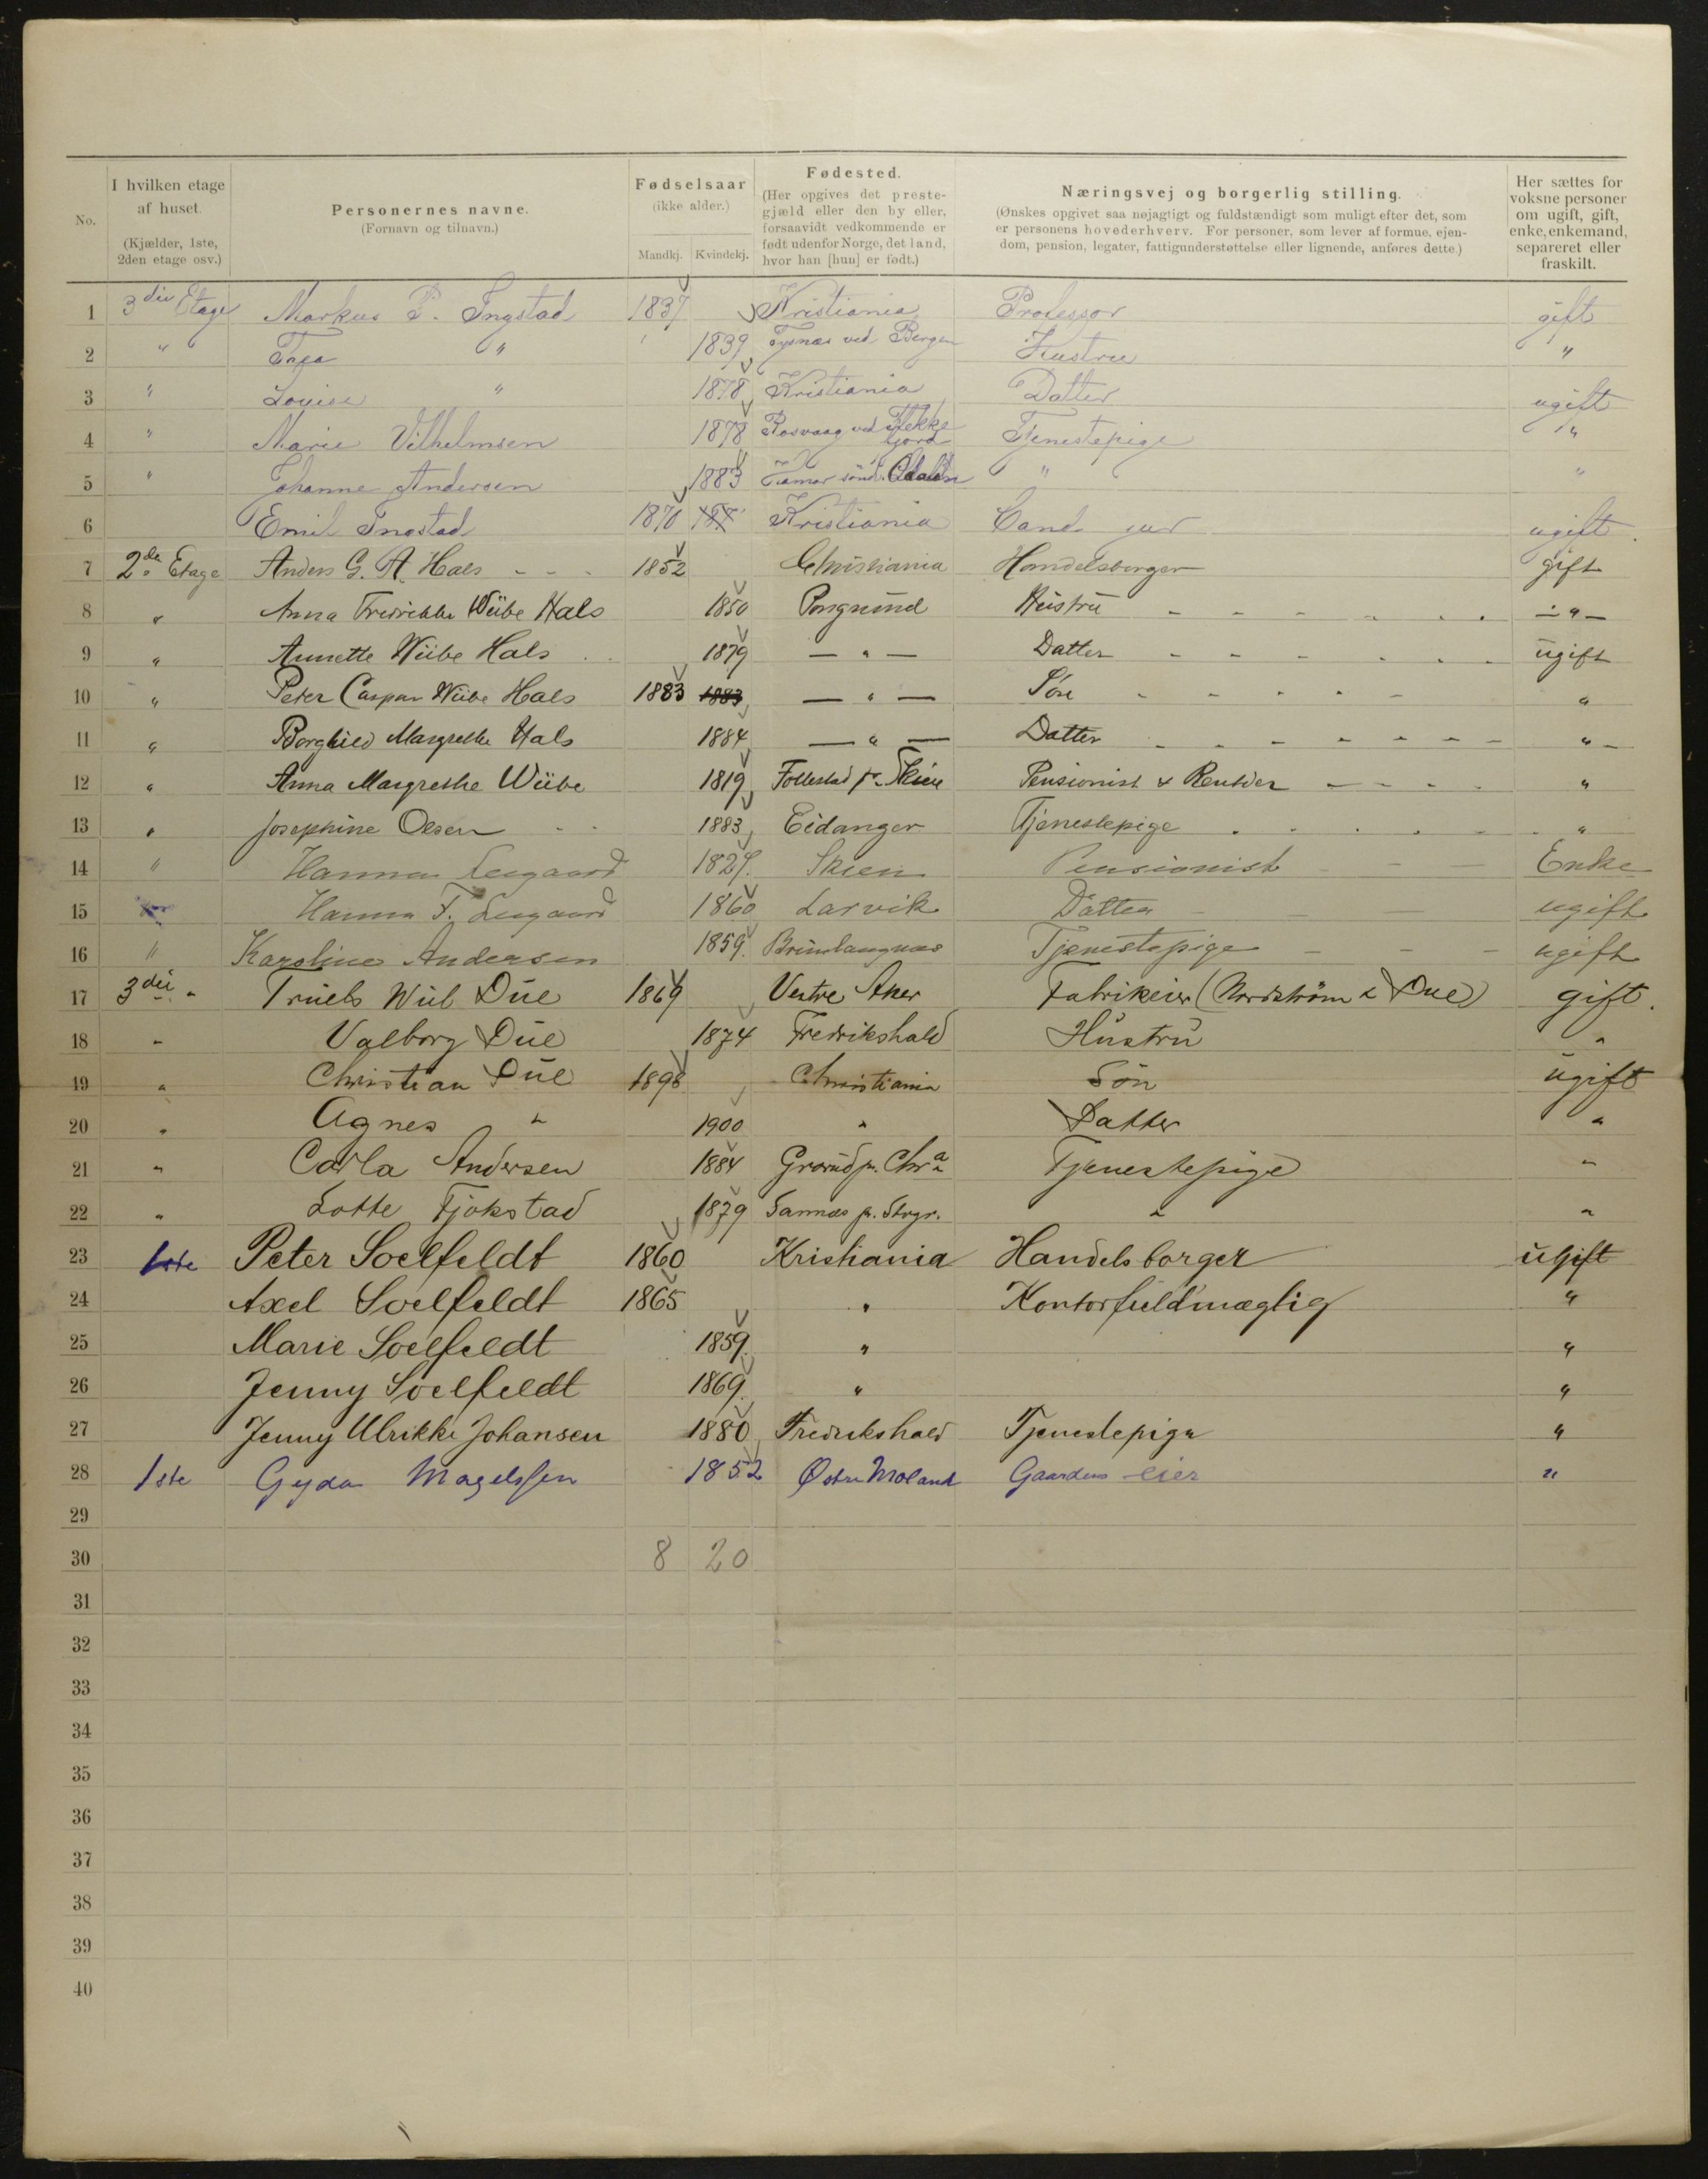 No.
I hvilken etage
af huset.
(Kjælder, 1ste,
2den etage osv.)
Personernes navne.
(Fornavn og tilnavn.)
Fødselsaar
(ikke alder.)
Mandkj. Kvindekj.
Fødested.
(Her opgives det preste-
gjæld eller den by eller,
forsaavidt vedkommende er
født udenfor Norge, det land,
hvor han [hun] er født.)
Næringsvej og borgerlig stilling.
(Ønskes opgivet saa nøjagtigt og fuldstændigt som muligt efter det, som
er personens hovederhverv. For personer, som lever af formue, ejen-
dom, pension, legater, fattigunderstøttelse eller lignende, anføres dette.)
Her sættes for
voksne personer
om ugift, gift,
enke, enkemand,
separeret eller
fraskilt.
1 3die Etage Markus P. Ingstad 1837 Kristiania Professor gift
2 " Thea " 1839 Tysnæs ved Bergen Hustru "
3 " Louise " 1878 Kristiania Datter ugift
4 " Marie Vilhelmsen 1878 Rosvaag ved Flekkefjord Tjenestepige "
5 " Johanne Andersen 1883 Hamar sönd. Odalen " "
6 Emil Ingstad 1870 Kristiania Cand. jur ugift.
7 2de Etage Anders G. A. Hals - - - 1852 Christiania Handelsborger gift
8 " Anna Fredrikke Wiibe Hals 1850 Porsgrund Hustru - - - - - - — " —
9 " Annette Wiibe Hals 1879 — " — Datter - - - - - - ugift
10 " Peter Caspar Wiibe Hals 1883 1883 — " — Søn - - - - - "
11 " Borghild Margrethe Hals 1884 — " — Datter - - - - - - - " -
12 " Anna Margrethe Wiibe 1819 Follestad pr. Skien Pensionist & Rentier - - - - "
13 " Josephine Olsen - - 1883 Eidanger Tjenestepige - - - - - - "
14 " Hanna Leegaard 1829. Skien Pensionist - - Enke
15 Hanna F. Leegaard 1860 Larvik Datter - - - ugift
16 " Karoline Andersen 1859. Brunlangnæs Tjenestepige - - - ugift
17 3die " Truels Wiel Due 1869 Vestre Aker Fabrikeier (Nordström & Due) gift.
18 " Valborg Due 1874 Fredrikshald Hustru "
19 " Christian Due 1898 Christiania Søn ugift
20 " Agnes " 1900 " Datter "
21 " Carla Andersen 1884 Grorud pr. Chra Tjenestepige "
22 " Lotte Tjøkstad 1879 Sannæs pr. Stvgr. " "
23 1ste Peter Soelfeldt 1860 Kristiania Handelsborger ugift
24 Axel Soelfeldt 1865 " Kontorfuldmægtig "
25 Marie Soelfeldt 1859. " "
26 Jenny Soelfeldt 1869. " "
27 Jenny Ulrikke Johansen 1880 Fredrikshald Tjenestepige "
28 1ste Gyda Magelssen 1852 Østre Moland Gaardens eier "
29
30 8 20
31
32
33
34
35
36
37
38
39
40